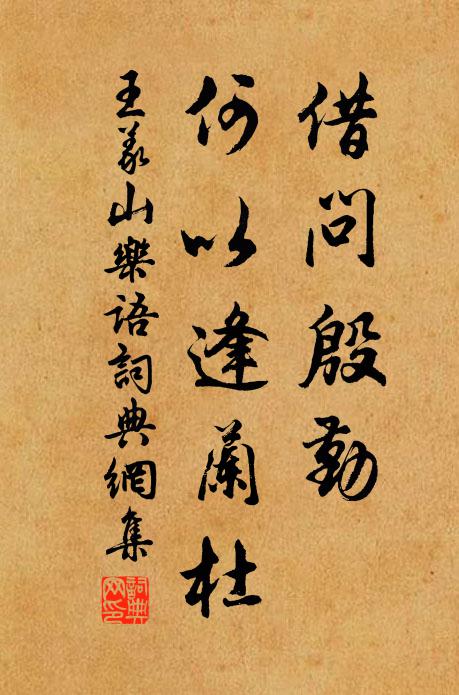 借問殷勤
何以逢蘭杜
王義山樂語詞典網集
詞典
网印